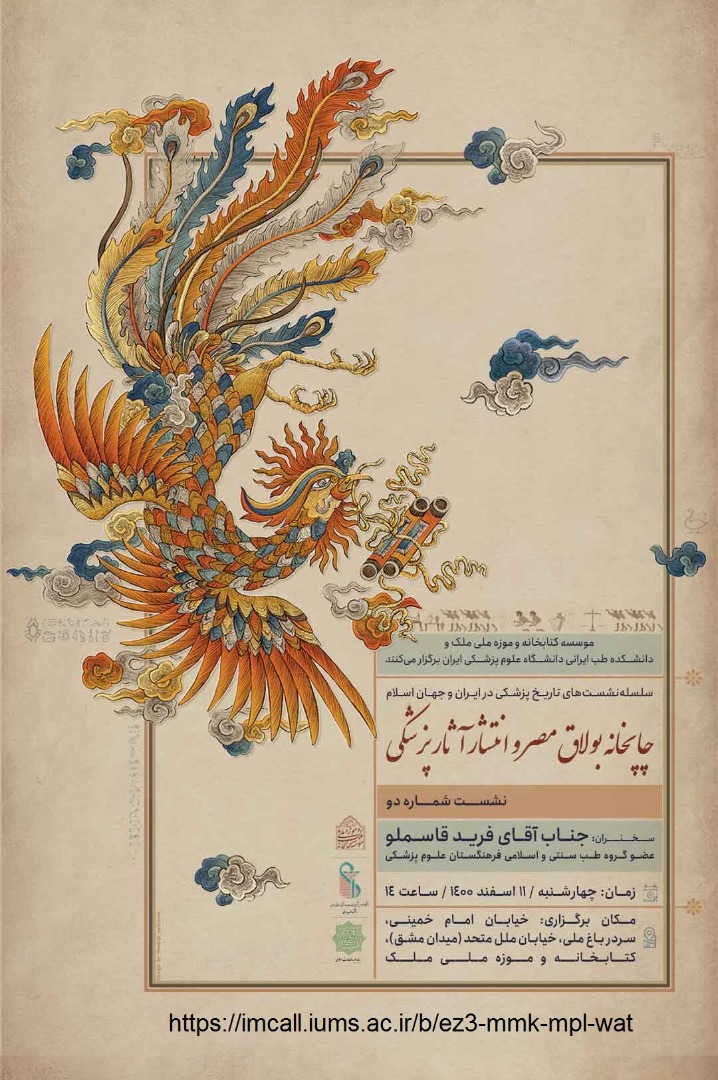 موسسه کتابخانه و موزه ملی ملک و
دانشکده طب ایرانی دانشگاه علوم پزشکی ایران برگزار می‌کنند
سلسله‌نشست‌های تاریخ پزشکی در ایران و جهان اسلام
چاپخانه بولاق مصر و انتشار آثار پزشکی
نشست شماره دو
سخنران: جناب آقای فرید قاسملو
عضو گروه طب سنتی و اسلامی فرهنگستان علوم پزشکی
زمان: چهارشنبه / ۱۱ اسفند ۱۴۰۰ / ساعت ۱۴
مکان برگزاری: خیابان امام خمینی،
سردر باغ ملی، خیابان ملل متحد (میدان مشق)،
کتابخانه و موزه ملی ملک
https://imcall.iums.ac.ir/b/ez3-mmk-mpl-wat